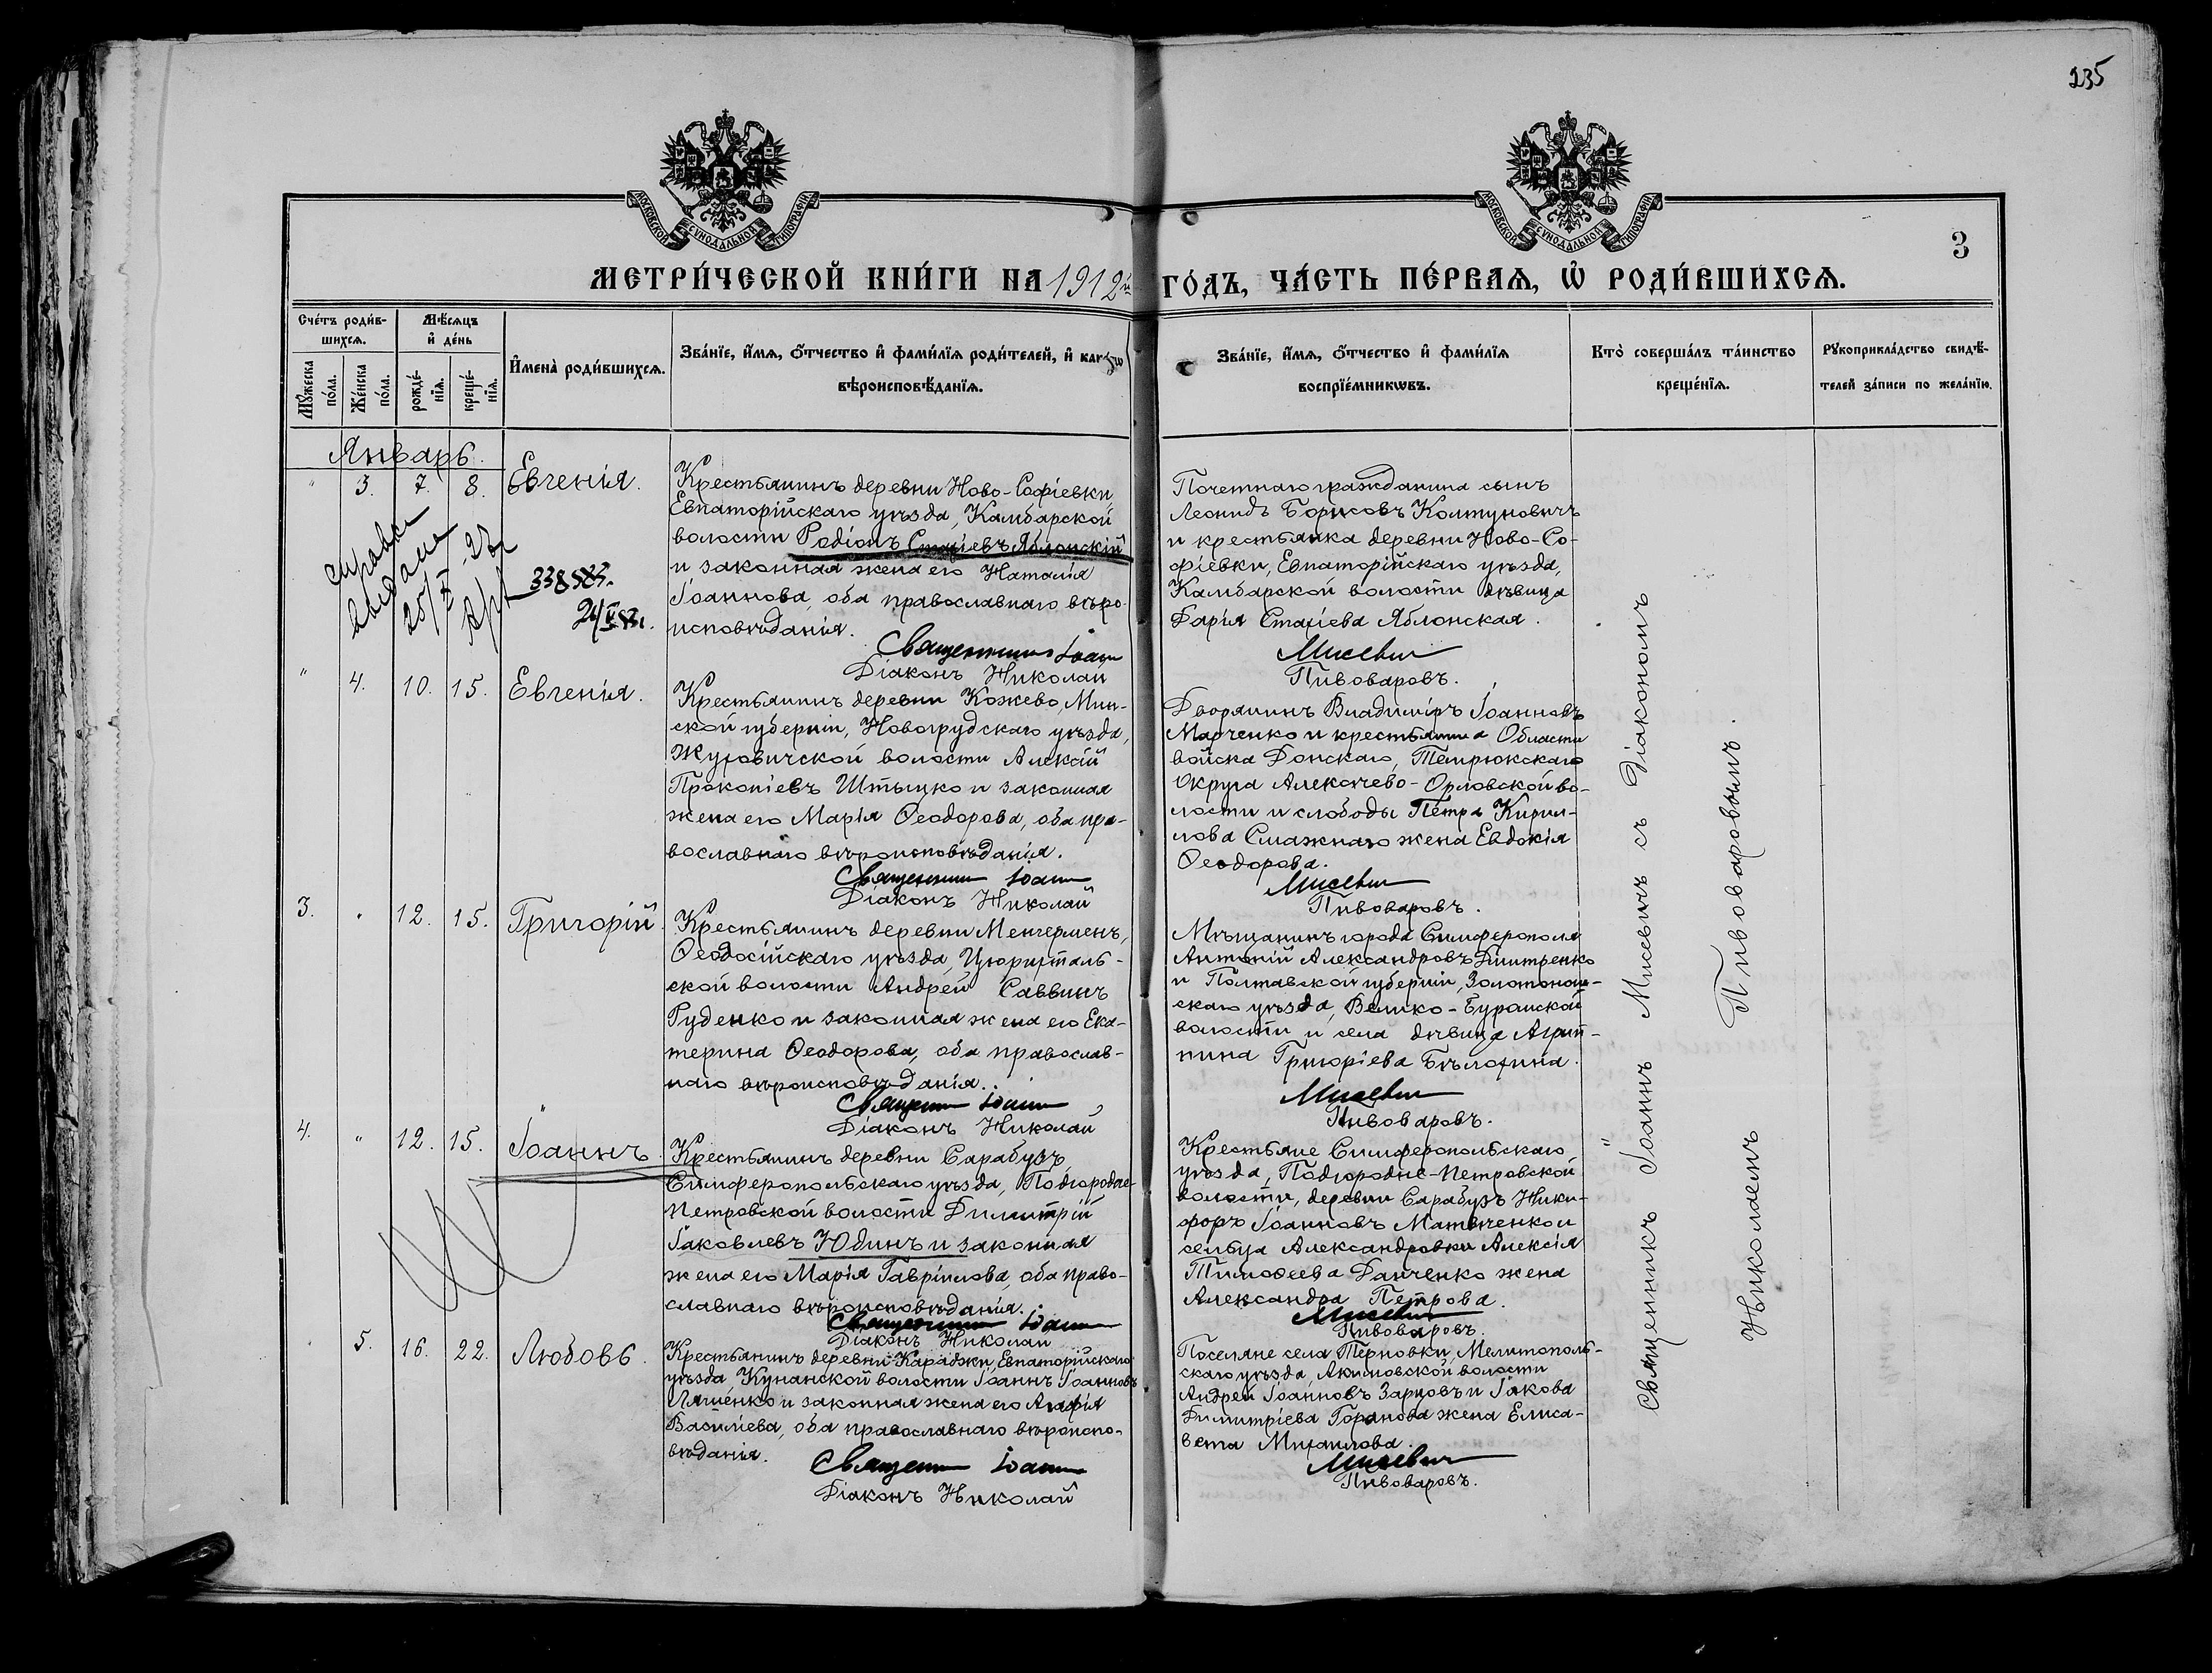 235
МОСКОВСКОЙ СУНОДАЛЬНОЙ ТИПОГРАФІИ
МОСКОВСКОЙ СУНОДАЛЬНОЙ ТИПОГРАФІИ
3
МЕТРИ́ЧЕСКОЙ КНИ́ГИ НА 1912й ГО́ДЪ, ЧА́СТЬ ПЕ́РВАѦ, Ѡ҆ РОДИ́ВШИХСѦ.
Сче́тъ роди́в-
шихсѧ.
Мѣ́сѧцъ
и҆ де́нь
Мꙋ́жеска
по́ла.
Же́нска
по́ла.
рожде́-
нїѧ.
креще́-
нїѧ.
И҆мена̀ роди́вшихсѧ.
Зва́нїе, и҆́мѧ, ѻ҆́тчество и҆ фами́лїѧ роди́телей, и҆ како́гѡ
вѣроисповѣ́данїѧ.
Зва́нїе, и҆́мѧ, ѻ҆́тчество и҆ фами́лїѧ
воспрїе́мникѡвъ.
Кто̀ соверша́лъ та́инство
креще́нїѧ.
Рꙋкоприкла́дство свидѣ́-
телей за́писи по жела́нїю.
Январь.
" 3. 7. 8. Евгенія.
Крестьянинъ деревни Ново-Софіевки
Евпаторійскаго уѣзда, Камбарской
волости Родіонъ Стахіевъ Яблонскій
и законная жена его Наталія
Іоаннова, оба православнаго вѣро-
исповѣданія.
Священникъ Іоаннъ
Діаконъ Николай
справка
выдана
338
Почетнаго гражданина сынъ
Леонидъ Борисовъ Колтуновичъ
и крестьянка деревни Ново-Со-
фіевки, Евпаторійскаго уѣзда,
Камбарской волости дѣвица
Дарія Стахіева Яблонская.
Мисевич
Пивоваровъ.
" 4. 10. 15. Евгенія.
Крестьянинъ деревни Кожево, Мин-
ской губерніи, Новогрудскаго уѣзда,
Жуховичской волости Алексій
Прокопіевъ Штыцко и законная
жена его Марія Ѳеодорова, оба пра-
вославнаго вѣроисповѣданія.
Священник Іоанн
Діаконъ Николай
Дворянинъ Владиміръ Іоанновъ
Марченко и крестьянина Области
войска Донскаго,
Округа Алексѣево-Орловской во-
лости и слободы Петра Кирил-
лова Смажнаго жена Евдокія
Ѳеодорова.
Мисевич
Пивоваровъ.
3. " 12. 15. Григорій.
Крестьянинъ деревни Менгерменъ,
Ѳеодосійскаго уѣзда, Цюрихталь-
ской волости Андрей Саввинъ
Руденко и законная жена его Ека-
терина Ѳеодорова, оба православ-
наго вѣроисповѣданія.
Священ Іоанн
Діаконъ Николай
Мѣщанинъ города Симферополя
Антоній Александровъ Дмитренко
и Полтавской губерніи, Золотонош-
скаго уѣзда, Велико-Буромской
волости и села дѣвица Агрип-
пина Григоріева Бѣлохина.
Мисевич
Пивоваровъ.
4. " 12. 15. Іоаннъ.
Крестьянинъ деревни Сарабузъ
Симферопольскаго уѣзда, Подгородне-
Петровской волости Димитрій
Іаковлевъ Юдинъ и законная
жена его Марія Гавріилова, оба право-
славнаго вѣроисповѣданія.
Священник Іоанн
Діаконъ Николай
Крестьяне Симферопольскаго
уѣзда, Подгородне-Петровской
волости, деревни Сарабузъ Ники-
форъ Іоанновъ Матвѣенко и
сельца Александровки Алексія
Тимоѳеева Данченко жена
Александра Петрова.
Мисевич
Пивоваровъ.
" 5. 16. 22. Любовь.
Крестьянинъ деревни Караджи, Евпаторійскаго
уѣзда, Кунанской волости Іоаннъ Іоанновъ
Ляшенко и законная жена его Агафія
Василіева, оба православнаго вѣроиспо-
вѣданія.
Священ Іоанн
Діаконъ Николай
Поселяне села Терновки, Мелитополь-
скаго уѣзда, Акимовской волости
Андрей Іоанновъ Зарковъ и Іакова
Димитріева Горанова жена Елиса-
вета Михаилова.
Мисевич
Пивоваровъ.
Священникъ Іоаннъ Мисевичъ съ Діакономъ
Николаемъ Пивоваровымъ.